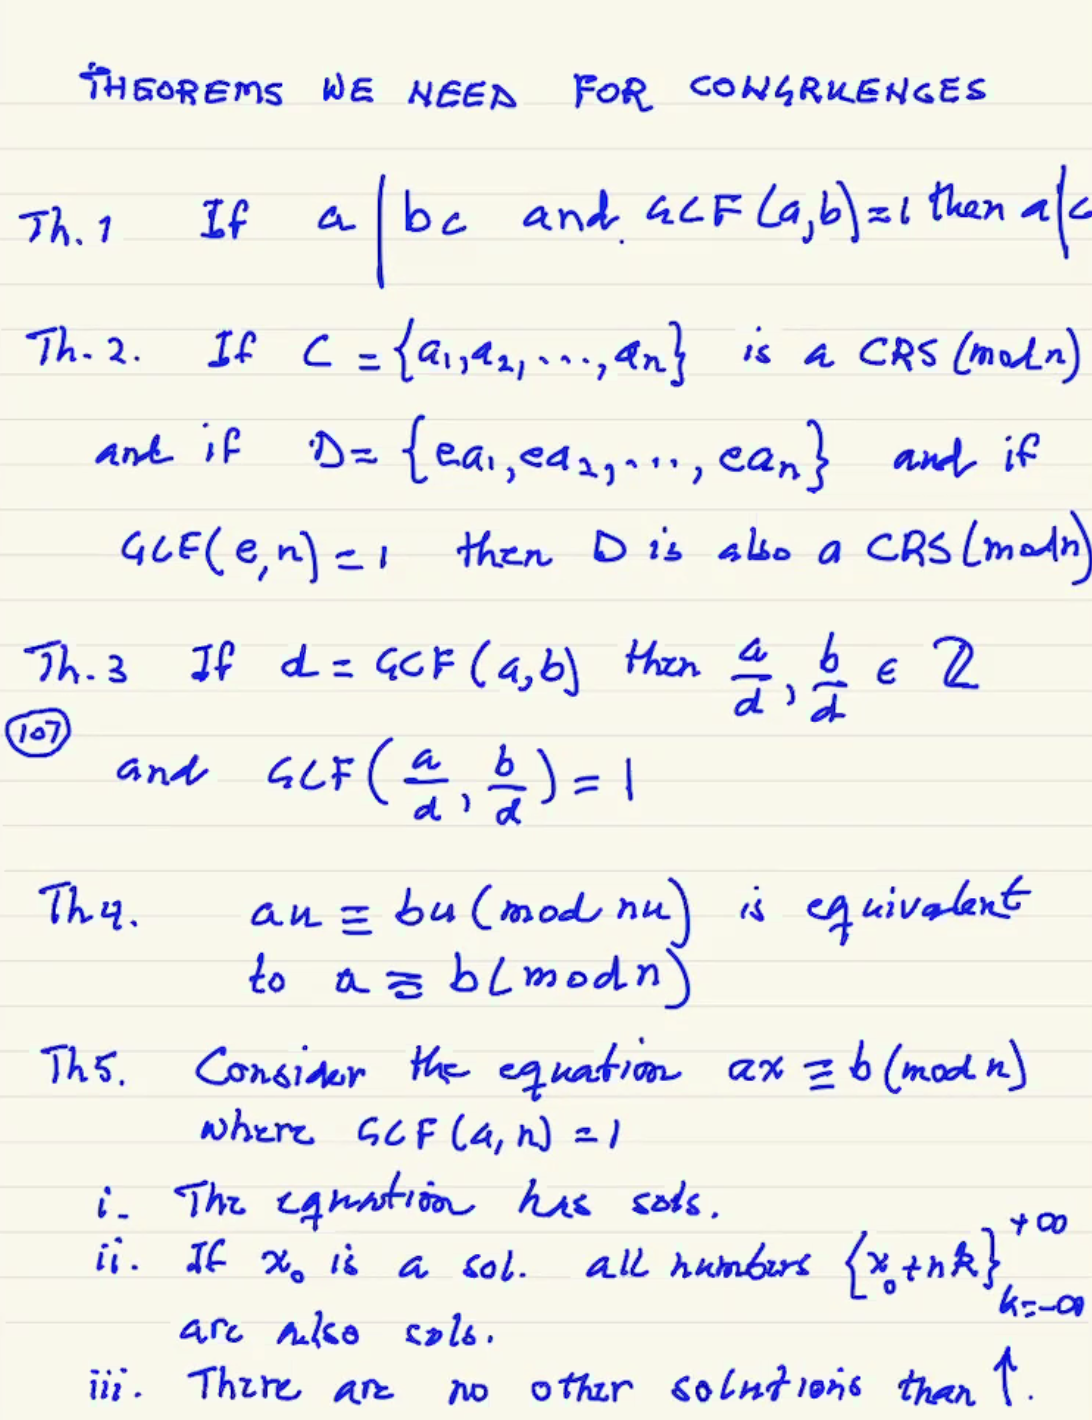 THEOREMS WE NEED FOR CONGRUENCES
Th. 1 If a | bc and GCF (a,b) = 1 then a | c
Th. 2. If C = {a₁, a₂, ..., aₙ} is a CRS (mod n)
and if D = {ea₁, ea₂, ..., eaₙ} and if
GCF(e,n) = 1 then D is also a CRS (mod n)
Th. 3 If d = GCF (a,b) then a/d, b/d ∈ ℤ
(107)
and GCF (a/d, b/d) = 1
Th 4. au ≡ bu (mod nu) is equivalent
to a ≡ b (mod n)
Th 5. Consider the equation ax ≡ b (mod n)
where GCF (a, n) = 1
i. The equation has sols.
ii. If x₀ is a sol. all numbers {x₀ + nk}_{k=-∞}^{+∞}
are also sols.
iii. There are no other solutions than ↑.